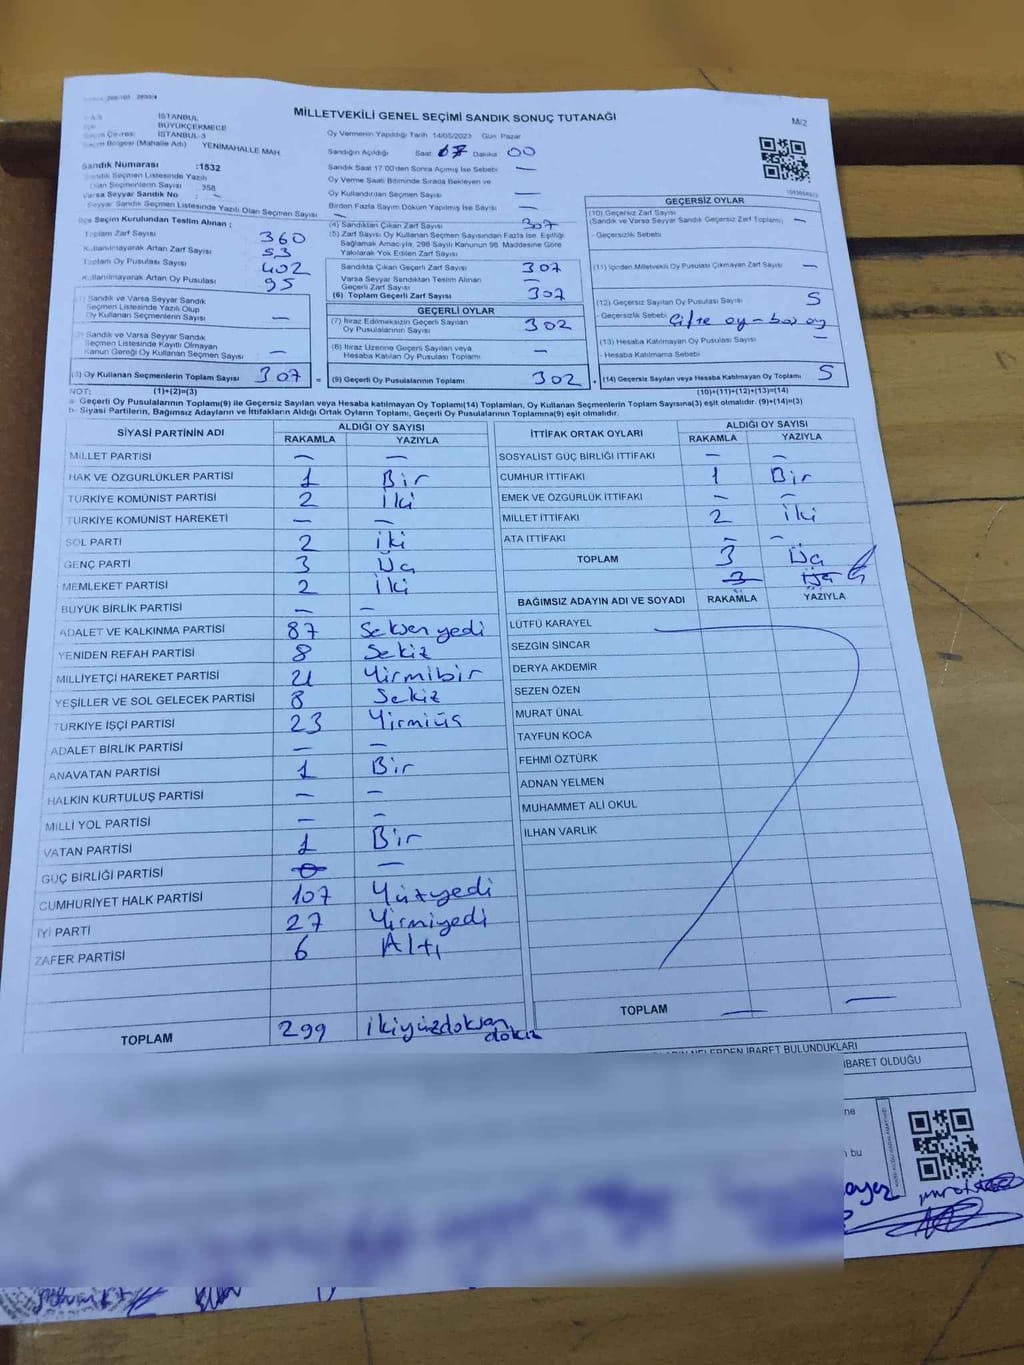 MİLLETVEKİLİ GENEL SEÇİMİ SANDIK SONUÇ TUTANAĞI
M/2
İSTANBUL
BÜYÜKÇEKMECE
Seçim Çevresi: İSTANBUL-3
Seçim Bölgesi (Mahalle Adı) YENİMAHALLE MAH.
Sandık Numarası :1532
Sandık Seçmen Listesinde Yazılı
Olan Seçmenlerin Sayısı : 358
Varsa Seyyar Sandık No : -
Seyyar Sandık Seçmen Listesinde Yazılı Olan Seçmen Sayısı
Oy Vermenin Yapıldığı Tarih 14/05/2023 Gün Pazar
Sandığın Açıldığı Saat 17 Dakika 00
Sandık Saat 17:00'den Sonra Açılmış İse Sebebi —
Oy Verme Saati Bitiminde Sırada Bekleyen ve
Oy Kullandırılan Seçmen Sayısı —
Birden Fazla Sayım Döküm Yapılmış İse Sayısı —
İlçe Seçim Kurulundan Teslim Alınan ;
Toplam Zarf Sayısı 360
Kullanılmayarak Artan Zarf Sayısı 53
Toplam Oy Pusulası Sayısı 402
Kullanılmayarak Artan Oy Pusulası 95
(1) Sandık ve Varsa Seyyar Sandık
Seçmen Listesinde Yazılı Olup
Oy Kullanan Seçmenlerin Sayısı —
(2) Sandık ve Varsa Seyyar Sandık
Seçmen Listesinde Kayıtlı Olmayan
Kanun Gereği Oy Kullanan Seçmen Sayısı —
(3) Oy Kullanan Seçmenlerin Toplam Sayısı 307
(1)+(2)=(3)
(4) Sandıktan Çıkan Zarf Sayısı 307
(5) Zarf Sayısı Oy Kullanan Seçmen Sayısından Fazla İse, Eşitliği
Sağlamak Amacıyla, 298 Sayılı Kanunun 98. Maddesine Göre
Yakılarak Yok Edilen Zarf Sayısı
Sandıkta Çıkan Geçerli Zarf Sayısı 307
Varsa Seyyar Sandıktan Teslim Alınan
Geçerli Zarf Sayısı
(6) Toplam Geçerli Zarf Sayısı 307
GEÇERLİ OYLAR
(7) İtiraz Edilmeksizin Geçerli Sayılan
Oy Pusulalarının Sayısı 302
(8) İtiraz Üzerine Geçerli Sayılan veya
Hesaba Katılan Oy Pusulası Toplamı —
= (9) Geçerli Oy Pusulalarının Toplamı 302
GEÇERSİZ OYLAR
(10) Geçersiz Zarf Sayısı
(Sandık ve Varsa Seyyar Sandık Geçersiz Zarf Toplamı) —
- Geçersizlik Sebebi
(11) İçinden Milletvekili Oy Pusulası Çıkmayan Zarf Sayısı —
(12) Geçersiz Sayılan Oy Pusulası Sayısı 5
- Geçersizlik Sebebi Çifte oy - boş oy
(13) Hesaba Katılmayan Oy Pusulası Sayısı —
- Hesaba Katılmama Sebebi
+ (14) Geçersiz Sayılan veya Hesaba Katılmayan Oy Toplamı 5
(10)+(11)+(12)+(13)=(14)
NOT:
a- Geçerli Oy Pusulalarının Toplamı(9) ile Geçersiz Sayılan veya Hesaba katılmayan Oy Toplamı(14) Toplamları, Oy Kullanan Seçmenlerin Toplam Sayısına(3) eşit olmalıdır. (9)+(14)=(3)
b- Siyasi Partilerin, Bağımsız Adayların ve İttifakların Aldığı Ortak Oyların Toplamı, Geçerli Oy Pusulalarının Toplamına(9) eşit olmalıdır.
SİYASİ PARTİNİN ADI
ALDIĞI OY SAYISI
RAKAMLA YAZIYLA
MİLLET PARTİSİ — —
HAK VE ÖZGÜRLÜKLER PARTİSİ 1 Bir
TÜRKİYE KOMÜNİST PARTİSİ 2 iki
TÜRKİYE KOMÜNİST HAREKETİ — —
SOL PARTİ 2 iki
GENÇ PARTİ 3 Üç
MEMLEKET PARTİSİ 2 İki
BÜYÜK BİRLİK PARTİSİ — —
ADALET VE KALKINMA PARTİSİ 87 Seksen yedi
YENİDEN REFAH PARTİSİ 8 Sekiz
MİLLİYETÇİ HAREKET PARTİSİ 21 Yirmibir
YEŞİLLER VE SOL GELECEK PARTİSİ 8 Sekiz
TÜRKİYE İŞÇİ PARTİSİ 23 Yirmiüç
ADALET BİRLİK PARTİSİ — —
ANAVATAN PARTİSİ 1 Bir
HALKIN KURTULUŞ PARTİSİ — —
MİLLİ YOL PARTİSİ — —
VATAN PARTİSİ 1 Bir
GÜÇ BİRLİĞİ PARTİSİ —
CUMHURİYET HALK PARTİSİ 107 Yüzyedi
İYİ PARTİ 27 Yirmiyedi
ZAFER PARTİSİ 6 Altı
TOPLAM 299 ikiyüzdoksan
dokuz
İTTİFAK ORTAK OYLARI
ALDIĞI OY SAYISI
RAKAMLA YAZIYLA
SOSYALİST GÜÇ BİRLİĞİ İTTİFAKI — —
CUMHUR İTTİFAKI 1 Bir
EMEK VE ÖZGÜRLÜK İTTİFAKI — —
MİLLET İTTİFAKI 2 iki
ATA İTTİFAKI — —
TOPLAM 3 Üç
3 Üç
BAĞIMSIZ ADAYIN ADI VE SOYADI RAKAMLA YAZIYLA
LÜTFÜ KARAYEL
SEZGİN SİNCAR
DERYA AKDEMİR
SEZEN ÖZEN
MURAT ÜNAL
TAYFUN KOCA
FEHMİ ÖZTÜRK
ADNAN YELMEN
MUHAMMET ALİ OKUL
İLHAN VARLIK
TOPLAM — —
NELERDEN İBARET BULUNDUKLARI
İBARET OLDUĞU